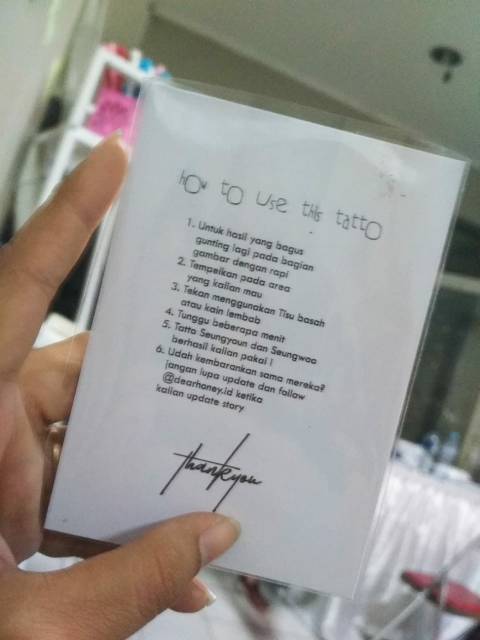 how to use this tatto
1. Untuk hasil yang bagus
gunting lagi pada bagian
gambar dengan rapi
2. Tempelkan pada area
yang kalian mau
3. Tekan menggunakan Tisu basah
atau kain lembab
4. Tunggu beberapa menit
5. Tatto Seungyoun dan Seungwoo
berhasil kalian pakai !
6. Udah kembarankan sama mereka?
jangan lupa update dan follow
@dearhoney.id ketika
kalian update story
thankyou